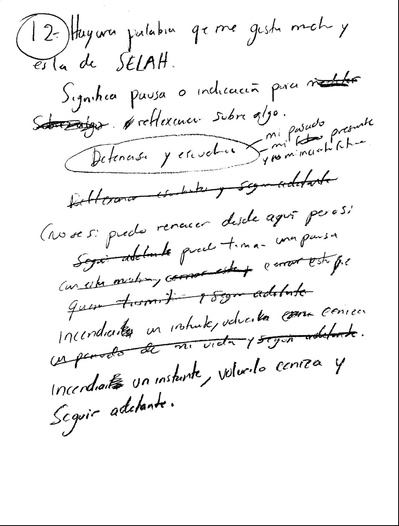 12- Hay una palabra qe me gusta mucho y
es la de SELAH.
Significa pausa o indicación para
reflexionar sobre algo.
Detenerse y escuchar
mi pasado
mi presente
y no mi incierto futuro.
Reflexionar escucharte y seguir adelante
(No se si puedo renacer desde aqui pero si
Seguir adelante puedo tomar una pausa
con esta mentira, cerrar este
y seguir adelante
Incendiar un instante, volverlo ceniza
un pasado de mi vida y seguir adelante.
Incendiar un instante, volverlo ceniza y
Seguir adelante.